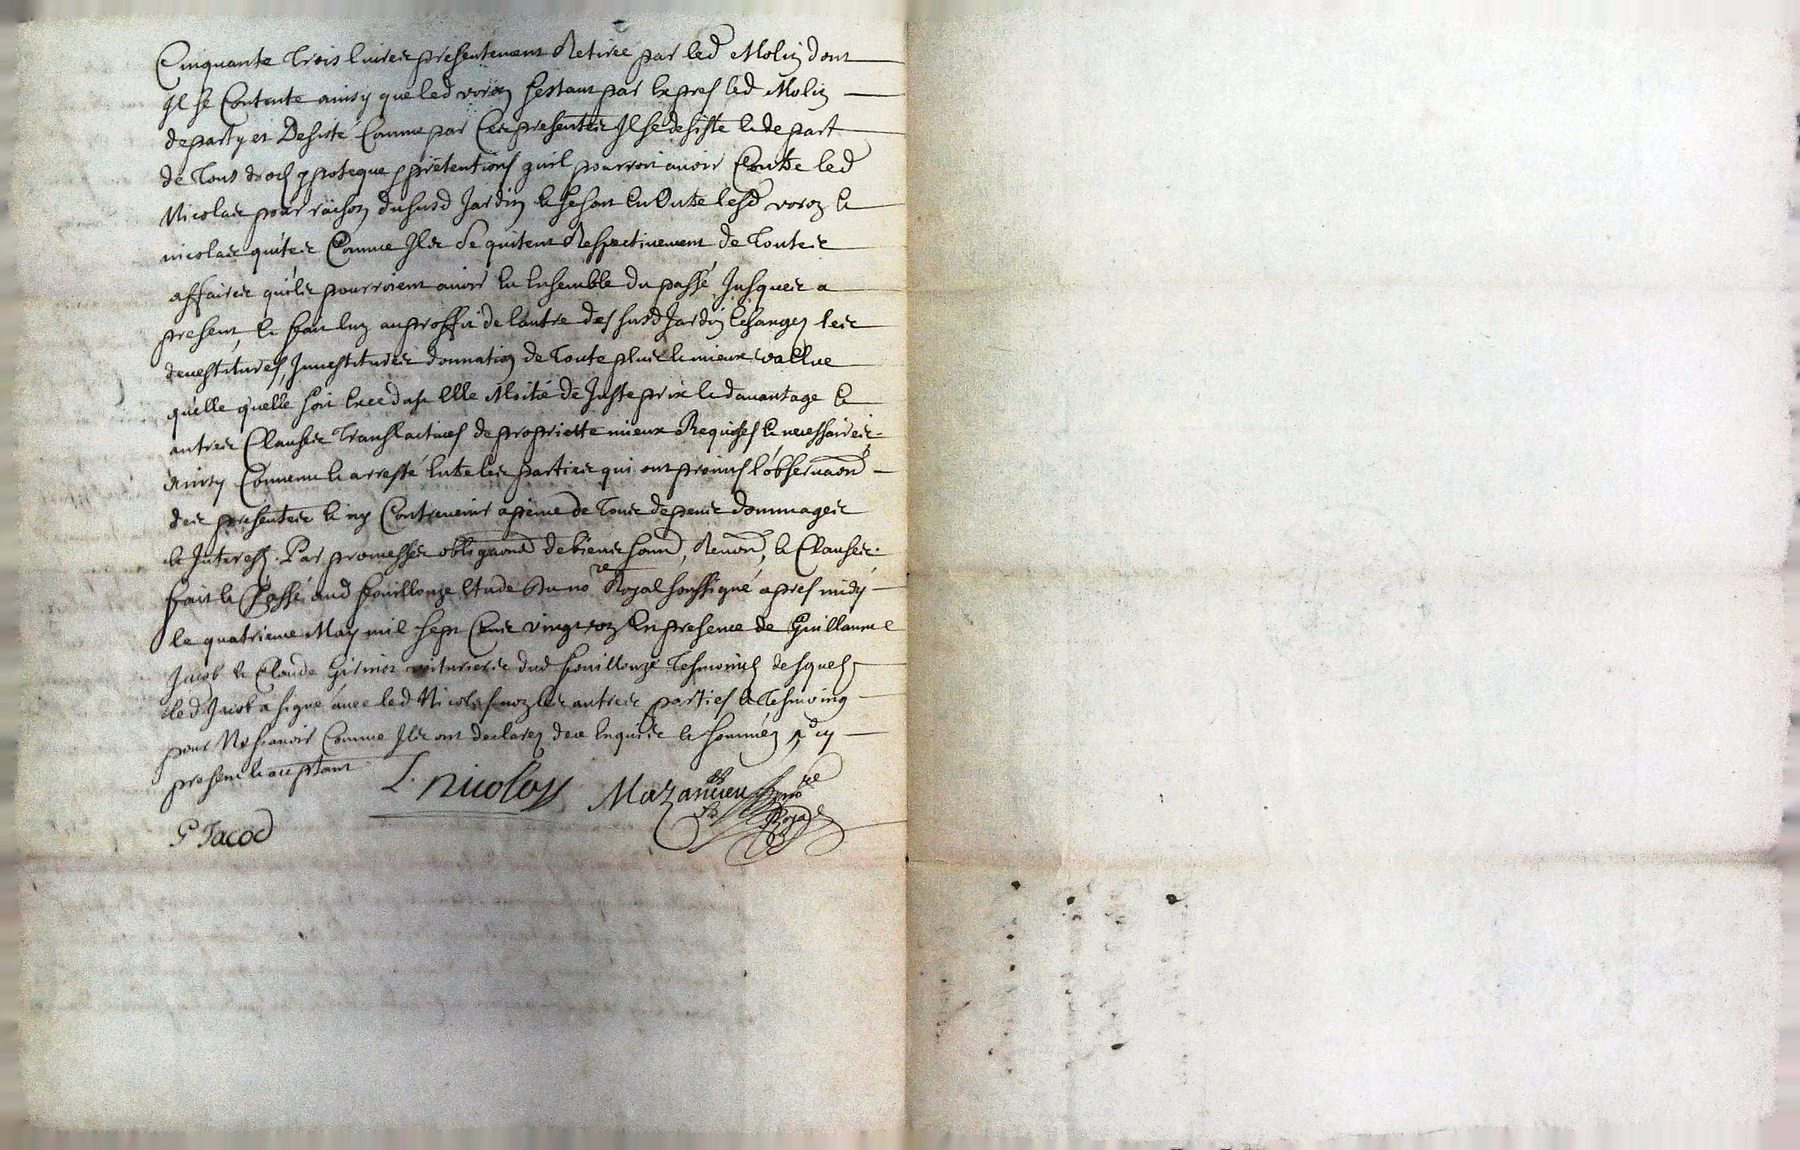 Cinquante trois livres presentement Retiree par led Molin dont
Il se Contente ainsy que led voron sestant par expres led Molin
departy et Desisté Comme par Ces presentes Il se desiste et depart
de tous droits ypoteque pretentions quil pourroit avoir Contre led
Nicolas pour raison dususd Jardin et se sont en Outre lesd voron et
nicolas quites Comme Ils se quitent Respectivement de toutes
affaires quils pourroient avoir eu Ensemble du passé Jusques a
present, et fait lun au proffit de lautre des susd Jardin eschangez les
devestitures, Investitures donnation de toute plus et mieux vallue
quelle quelle soit Moitié de Juste prix et davantage et
autres Clauses translatives de proprietté mieux Requises et necessaires
ainsy Convenu et arresté entre les parties qui ont promis lobservaon
des presentes et ny Contrevenir a peine de tous despens dommages
et Interests. Par promesses obligaons de biens soum, Renon, et Clauses.
fait et Passé aud fouillouze Etude du no.re Royal soussigné apres midy
le quatrieme May mil sept Cens vingt En presence de Guillaume
Jacob et Claude voituriers dud fouillouze Tesmoins desquels
led Jacob a signé avec led Nicolas non les autres parties et Tesmoing
pour Ne scavoir Comme Ils ont declarez de ce Enquis et sommés
present et acceptant
L. nicolas Mazancieu no.re
Royal
G Jacod